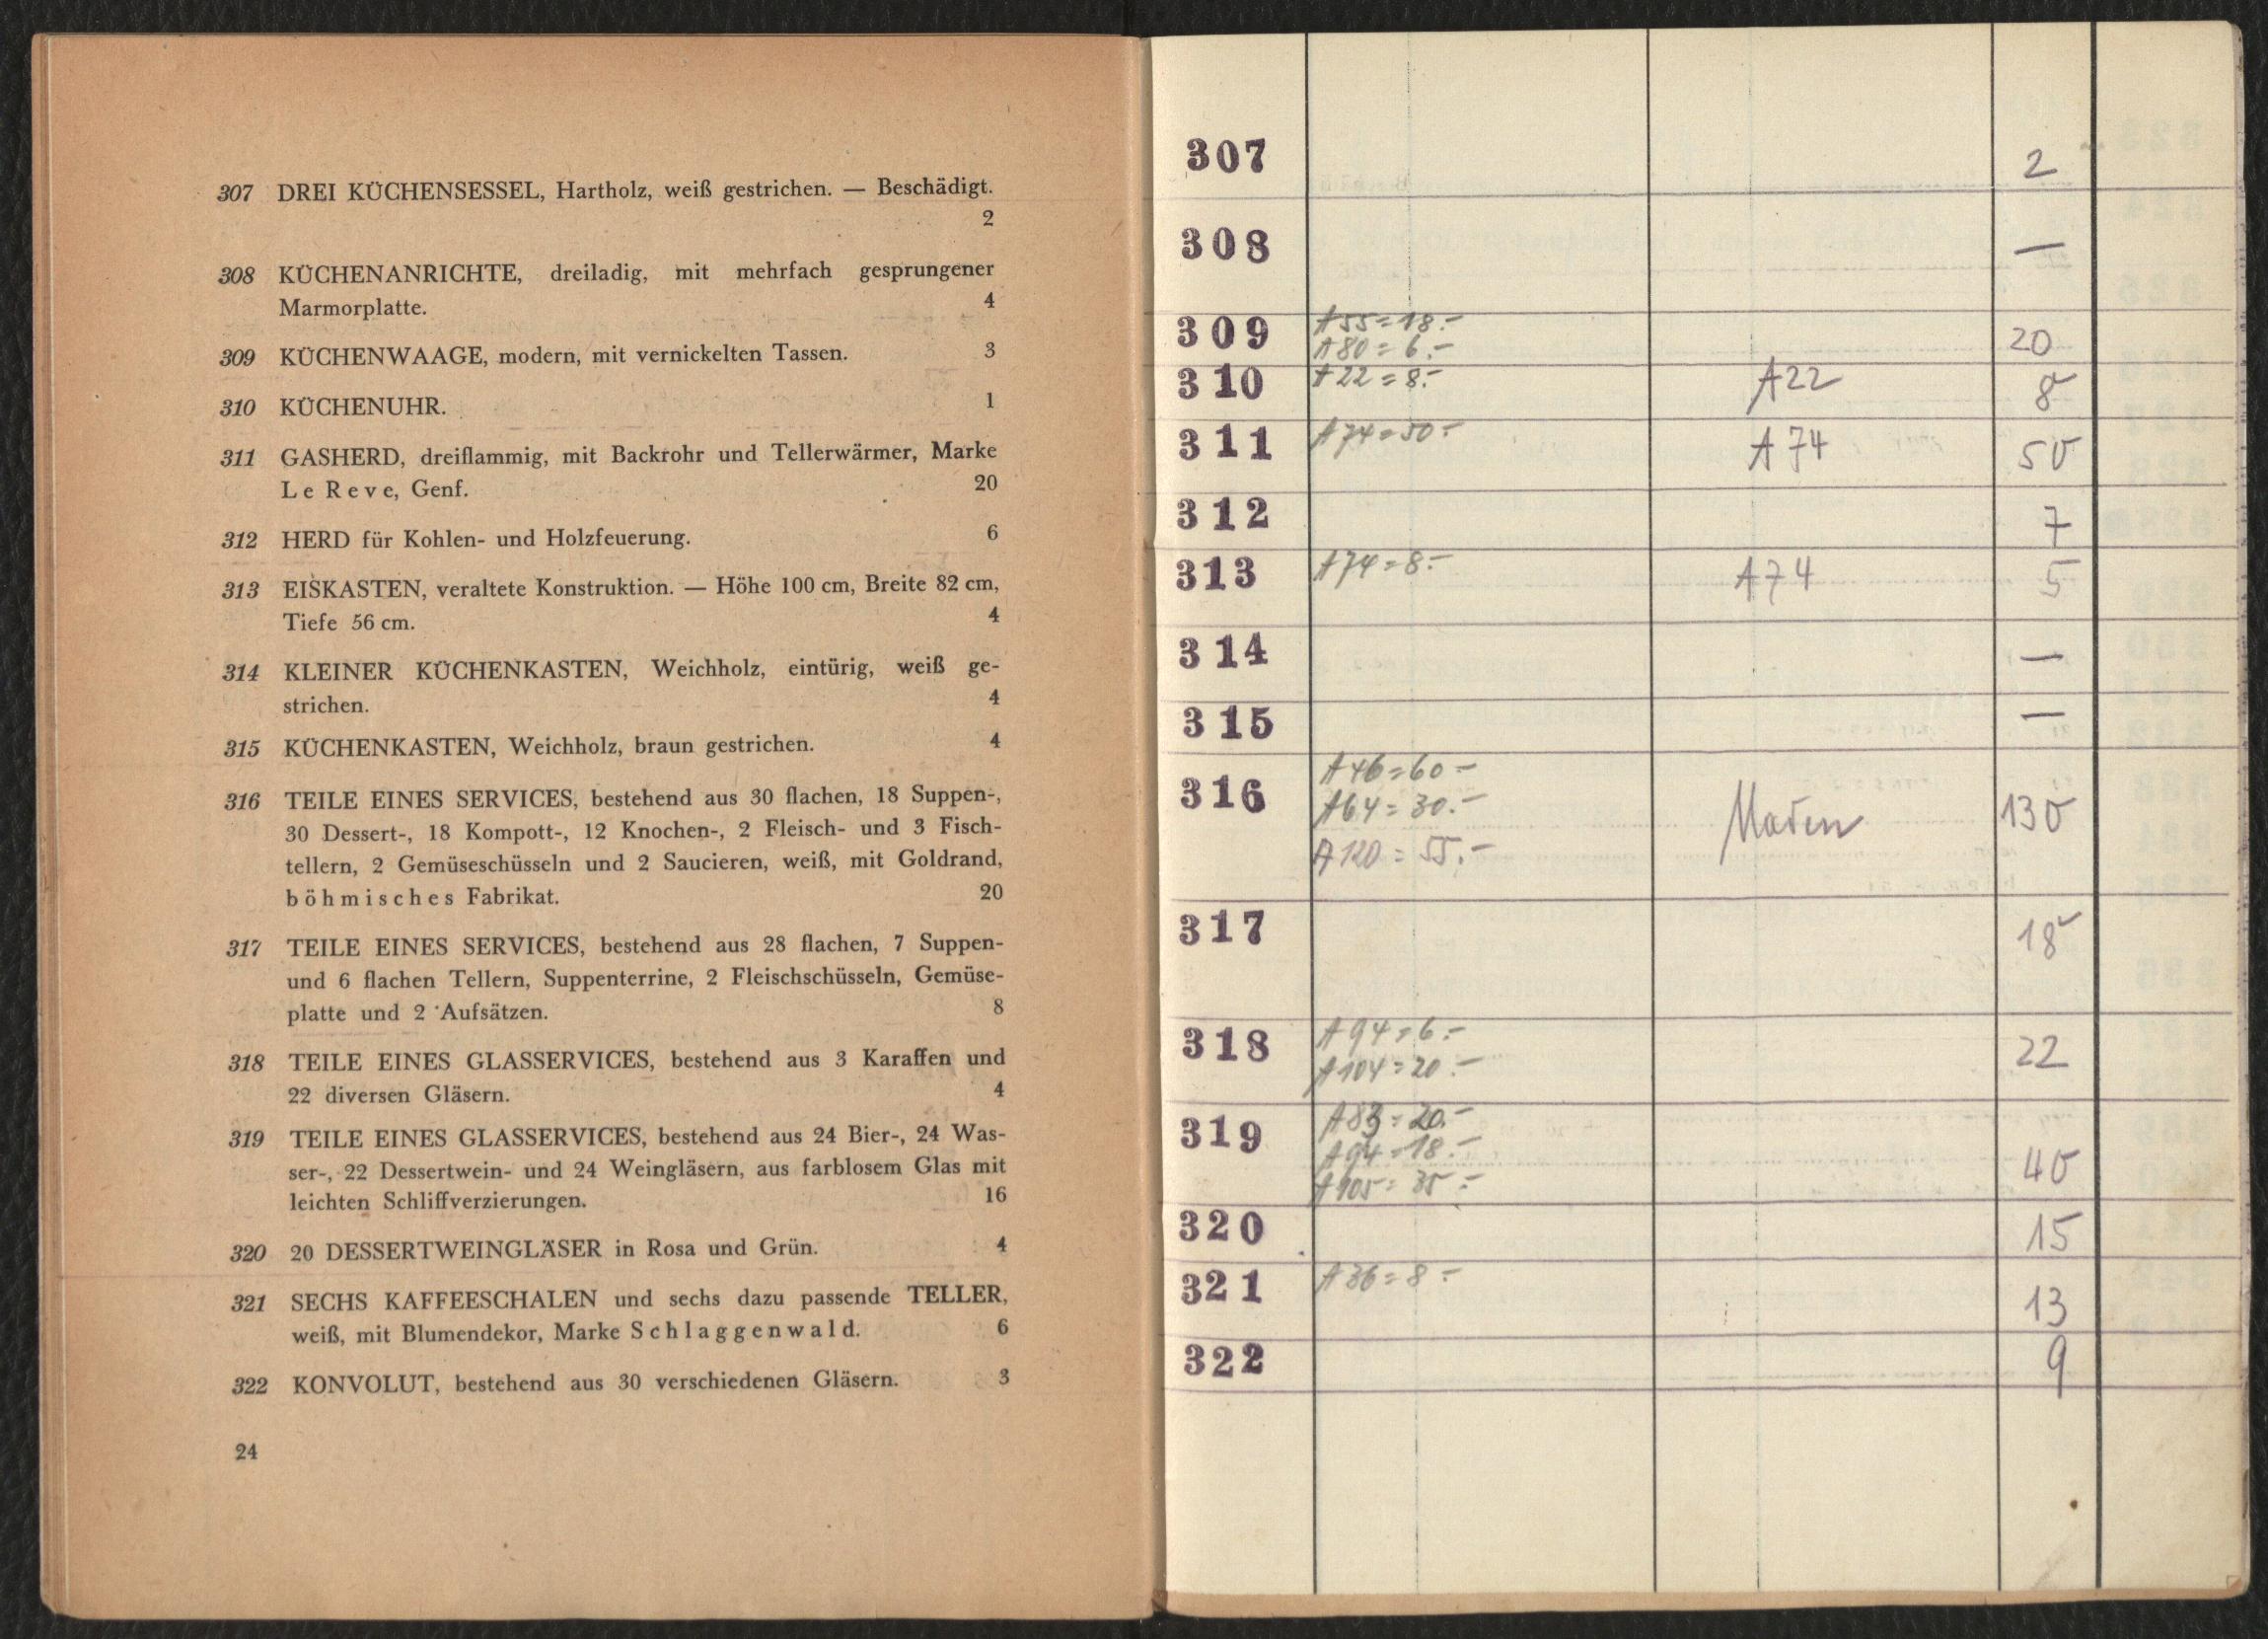 307 DREI KÜCHENSESSEL, Hartholz, weiß gestrichen. — Beschädigt.
2
308 KÜCHENANRICHTE, dreiladig, mit mehrfach gesprungener
Marmorplatte. 4
309 KÜCHENWAAGE, modern, mit vernickelten Tassen. 3
310 KÜCHENUHR. 1
311 GASHERD, dreiflammig, mit Backrohr und Tellerwärmer, Marke
Le Reve, Genf. 20
312 HERD für Kohlen- und Holzfeuerung. 6
313 EISKASTEN, veraltete Konstruktion. — Höhe 100 cm, Breite 82 cm,
Tiefe 56 cm. 4
314 KLEINER KÜCHENKASTEN, Weichholz, eintürig, weiß ge-
strichen. 4
315 KÜCHENKASTEN, Weichholz, braun gestrichen. 4
316 TEILE EINES SERVICES, bestehend aus 30 flachen, 18 Suppen-,
30 Dessert-, 18 Kompott-, 12 Knochen-, 2 Fleisch- und 3 Fisch-
tellern, 2 Gemüseschüsseln und 2 Saucieren, weiß, mit Goldrand,
böhmisches Fabrikat. 20
317 TEILE EINES SERVICES, bestehend aus 28 flachen, 7 Suppen-
und 6 flachen Tellern, Suppenterrine, 2 Fleischschüsseln, Gemüse-
platte und 2 Aufsätzen. 8
318 TEILE EINES GLASSERVICES, bestehend aus 3 Karaffen und
22 diversen Gläsern. 4
319 TEILE EINES GLASSERVICES, bestehend aus 24 Bier-, 24 Was-
ser-, 22 Dessertwein- und 24 Weingläsern, aus farblosem Glas mit
leichten Schliffverzierungen. 16
320 20 DESSERTWEINGLÄSER in Rosa und Grün. 4
321 SECHS KAFFEESCHALEN und sechs dazu passende TELLER,
weiß, mit Blumendekor, Marke Schlaggenwald. 6
322 KONVOLUT, bestehend aus 30 verschiedenen Gläsern. 3
24
307 2
308 —
309 A55=18.-
A80=6.- 20
310 A22=8.- A22 8
311 A74=50.- A74 50
312 7
313 A74=8.- A74 5
314 —
315 —
316 A46=60.-
A64=30.- 130
A120=55.-
317 18
318 A94=6.-
A104=20.- 22
319 A83=20.-
A94=18.-
A105=35.- 40
320 15
321 A36=8.- 13
322 9